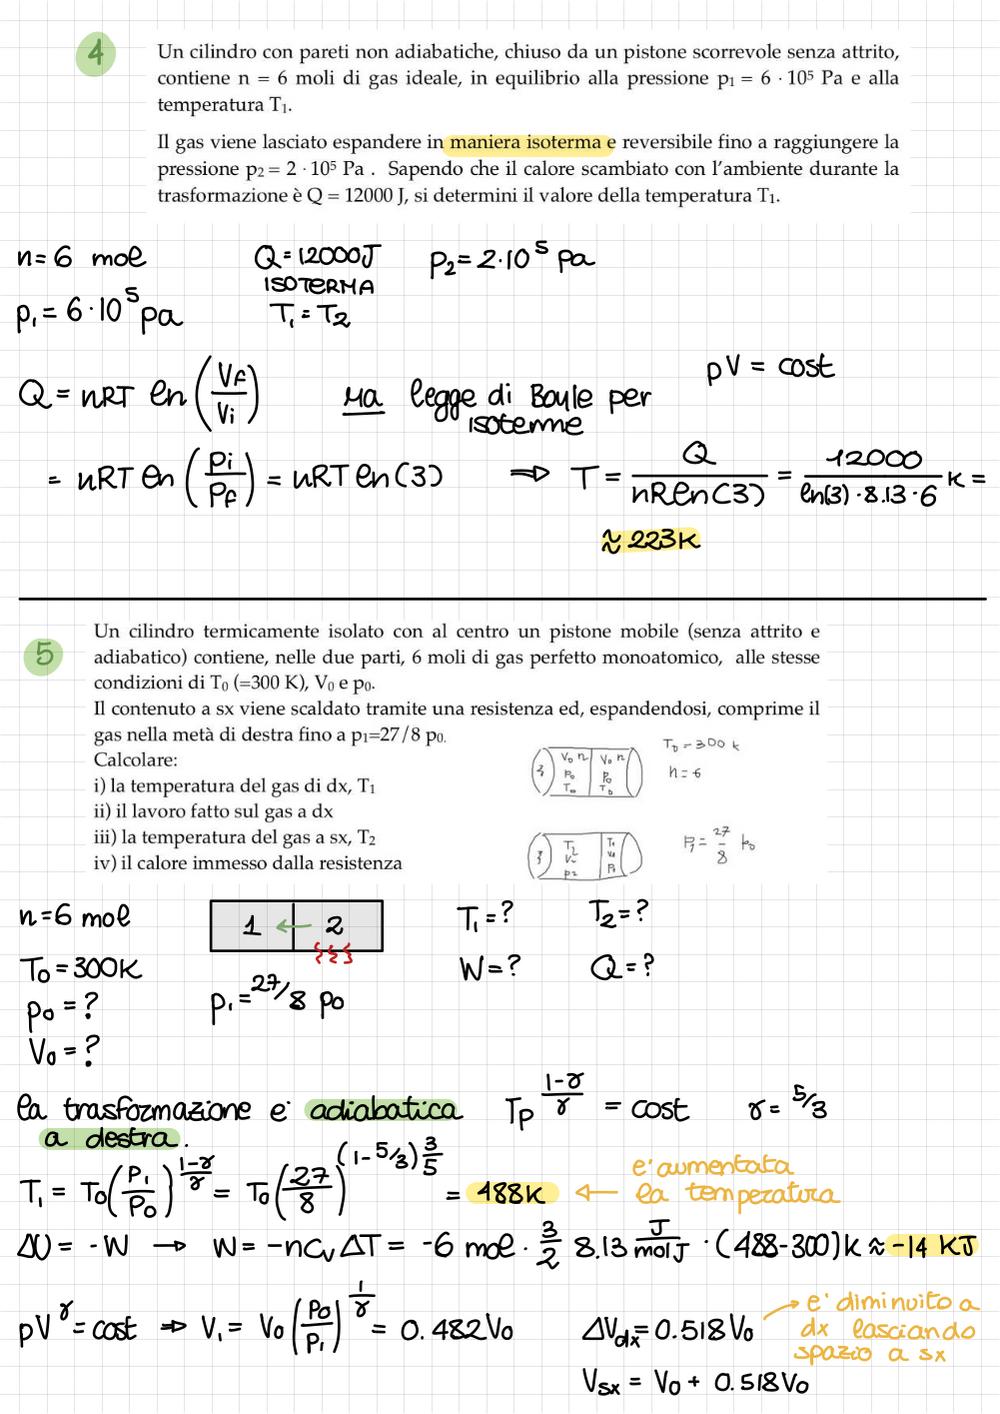 4
Un cilindro con pareti non adiabatiche, chiuso da un pistone scorrevole senza attrito,
contiene n = 6 moli di gas ideale, in equilibrio alla pressione p₁ = 6 · 10⁵ Pa e alla
temperatura T₁.
Il gas viene lasciato espandere in maniera isoterma e reversibile fino a raggiungere la
pressione p₂ = 2 · 10⁵ Pa . Sapendo che il calore scambiato con l'ambiente durante la
trasformazione è Q = 12000 J, si determini il valore della temperatura T₁.
n=6 mol Q=12000J p₂=2·10⁵ pa
ISOTERMA
p₁=6·10⁵pa T₁=T₂
Q=nRT ln(Vf/Vi) MA legge di Boule per isoterme pV = cost
= nRT ln(Pi/Pf) = nRT ln(3) ⇒ T = Q/nRln(3) = 12000/ln(3)·8.13·6 K =
≈ 223K
5
Un cilindro termicamente isolato con al centro un pistone mobile (senza attrito e
adiabatico) contiene, nelle due parti, 6 moli di gas perfetto monoatomico, alle stesse
condizioni di T₀ (=300 K), V₀ e p₀.
Il contenuto a sx viene scaldato tramite una resistenza ed, espandendosi, comprime il
gas nella metà di destra fino a p₁=27/8 p₀.
Calcolare:
i) la temperatura del gas di dx, T₁
ii) il lavoro fatto sul gas a dx
iii) la temperatura del gas a sx, T₂
iv) il calore immesso dalla resistenza
V₀ n V₀ n T₀=300 K
P₀ P₀ n=6
T₀ T₀
T₂ T₁ P₁=27/8 p₀
p₂ P₁
n=6 mol 1 ← 2 T₁=? T₂=?
T₀=300K W=? Q=?
p₀=? p₁=27/8 p₀
V₀=?
la trasformazione e' adiabatica Tp^(1-γ)/γ = cost γ=5/3
a destra.
T₁ = T₀(P₁/P₀)^(1-γ)/γ = T₀(27/8)^(1-5/3)3/5 = 488K ← e' aumentata
la temperatura
ΔU = -W → W = -ncᵥΔT = -6 mol · 3/2 8.13 J/molJ · (488-300)K ≈ -14 KJ
pV^γ = cost ⇒ V₁ = V₀(P₀/P₁)^1/γ = 0.482V₀ ΔVdx=0.518V₀ → e' diminuito a
dx lasciando
spazio a sx
Vsx = V₀ + 0.518V₀